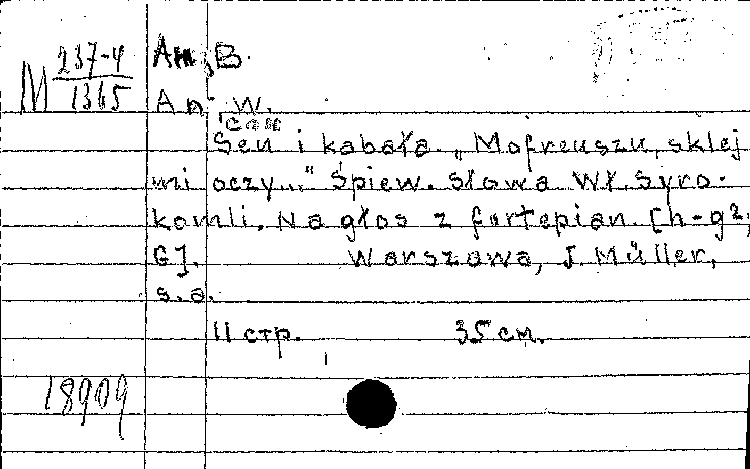 М 237-4
1365
Ап, В.
Ап, W.
сан
Sen i kabała. „Mofreuszu, sklej
mi oczy..." Śpiew. Słowa Wł. Syro-
komli. Na głos z fortepian. [h-g²;
G]. Warszawa, J. Müller,
s.a.
11 стр. 35 см.
18909